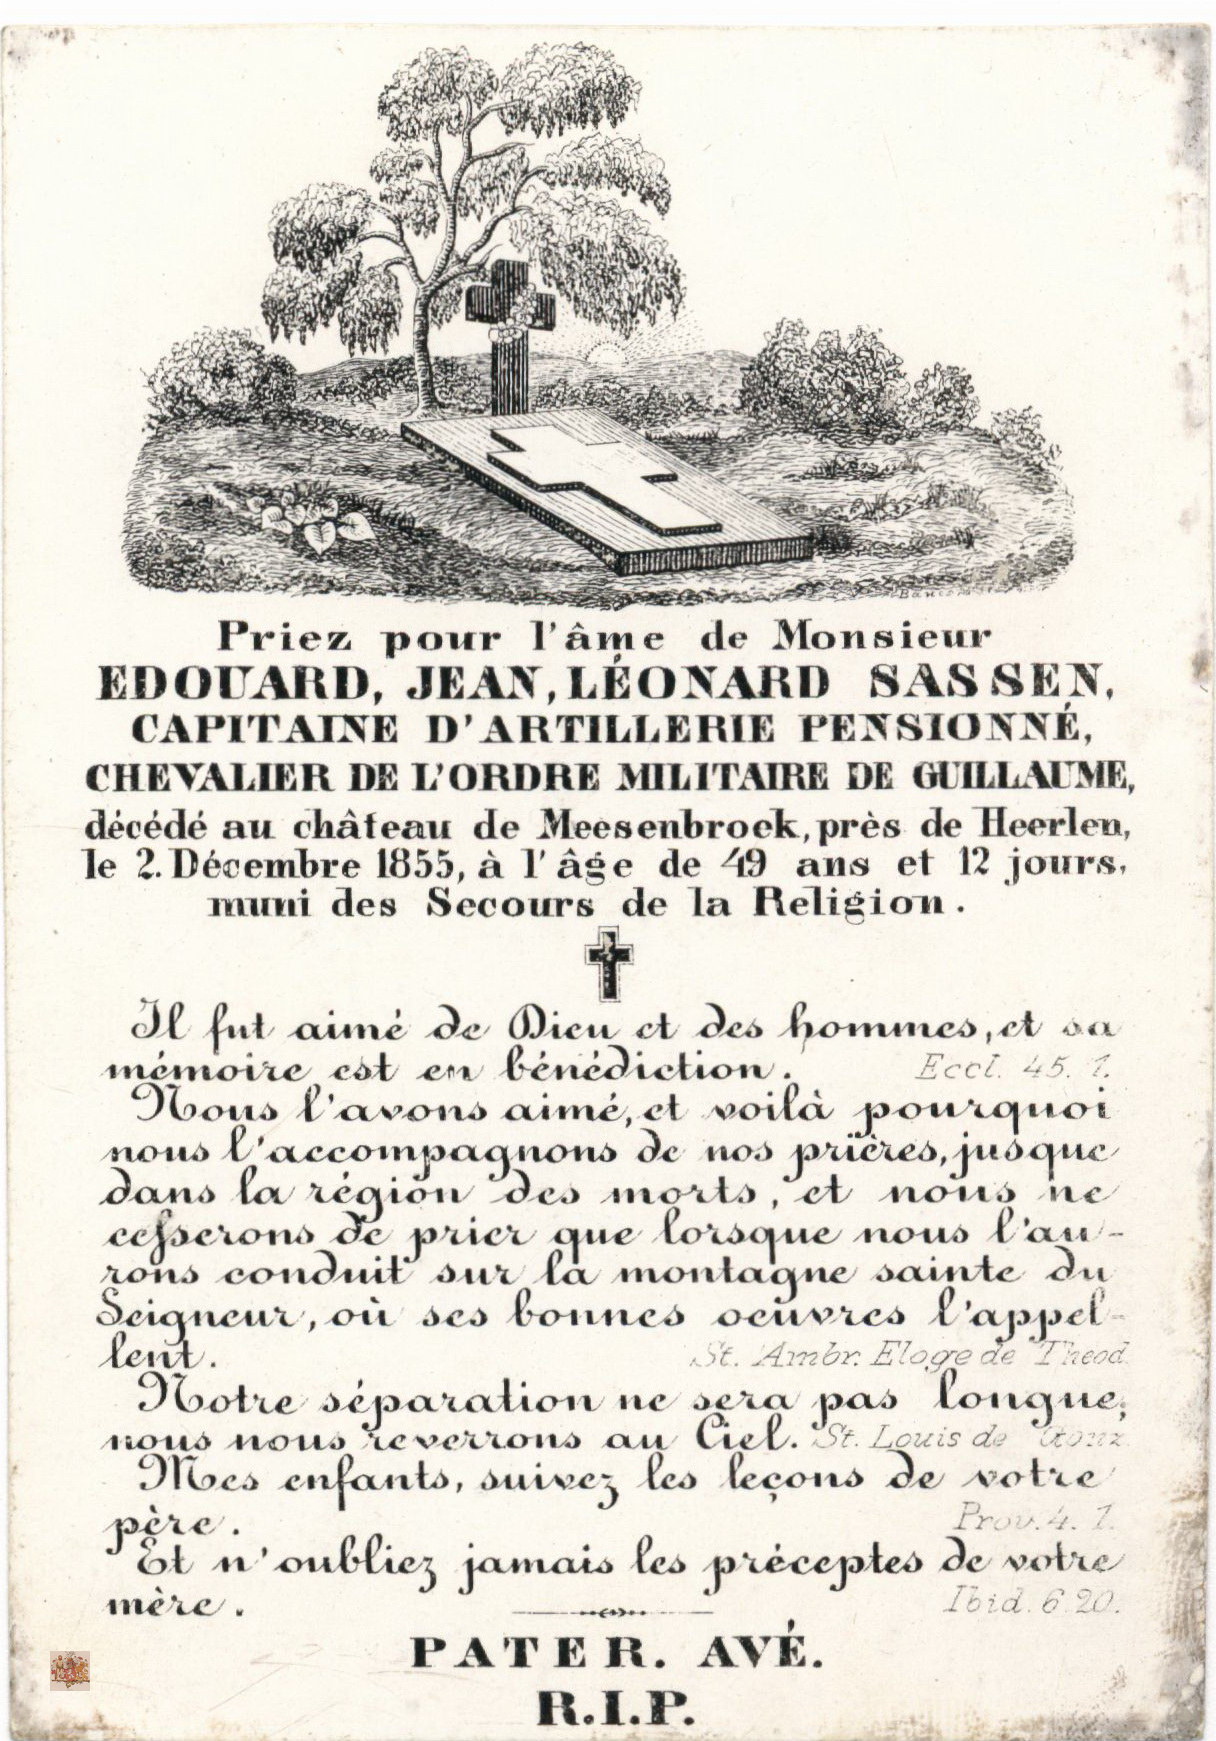 Priez pour l'âme de Monsieur
EDOUARD, JEAN, LÉONARD SASSEN,
CAPITAINE D'ARTILLERIE PENSIONNÉ,
CHEVALIER DE L'ORDRE MILITAIRE DE GUILLAUME,
décédé au château de Meesenbroek, près de Heerlen,
le 2. Décembre 1855, à l'âge de 49 ans et 12 jours,
muni des Secours de la Religion.
Il fut aimé de Dieu et des hommes, et sa
mémoire est en bénédiction. Eccl. 45. 1.
Nous l'avons aimé, et voilà pourquoi
nous l'accompagnons de nos prières, jusque
dans la région des morts, et nous ne
cesserons de prier que lorsque nous l'au-
rons conduit sur la montagne sainte du
Seigneur, où ses bonnes oeuvres l'appel-
lent. St. Ambr. Eloge de Theod.
Notre séparation ne sera pas longue,
nous nous reverrons au Ciel. St. Louis de
Mes enfants, suivez les leçons de votre
père. Prov. 4. 1.
Et n'oubliez jamais les préceptes de votre
mère. Ibid. 6. 20.
PATER. AVÉ.
R.I.P.